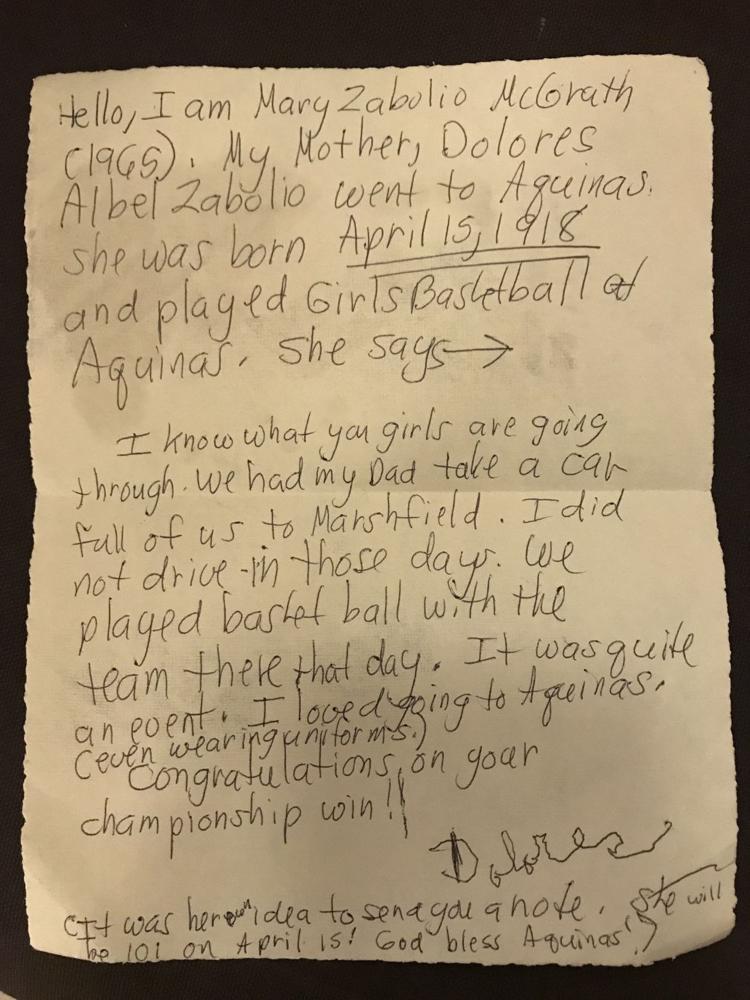 Hello, I am Mary Zabolio McGrath
(1965). My Mother, Dolores
Albel Zabolio went to Aquinas.
she was born April 15, 1918
and played Girls Basketball at
Aquinas. she says→
I know what you girls are going
through. We had my Dad take a car
full of us to Marshfield. I did
not drive in those days. We
played basket ball with the
team there that day. It was quite
an event. I loved going to Aquinas.
(even wearing uniforms.)
Congratulations on your
championship win!!
Dolores
(It was her own idea to send you a note. she will
be 101 on April 15! God bless Aquinas!)